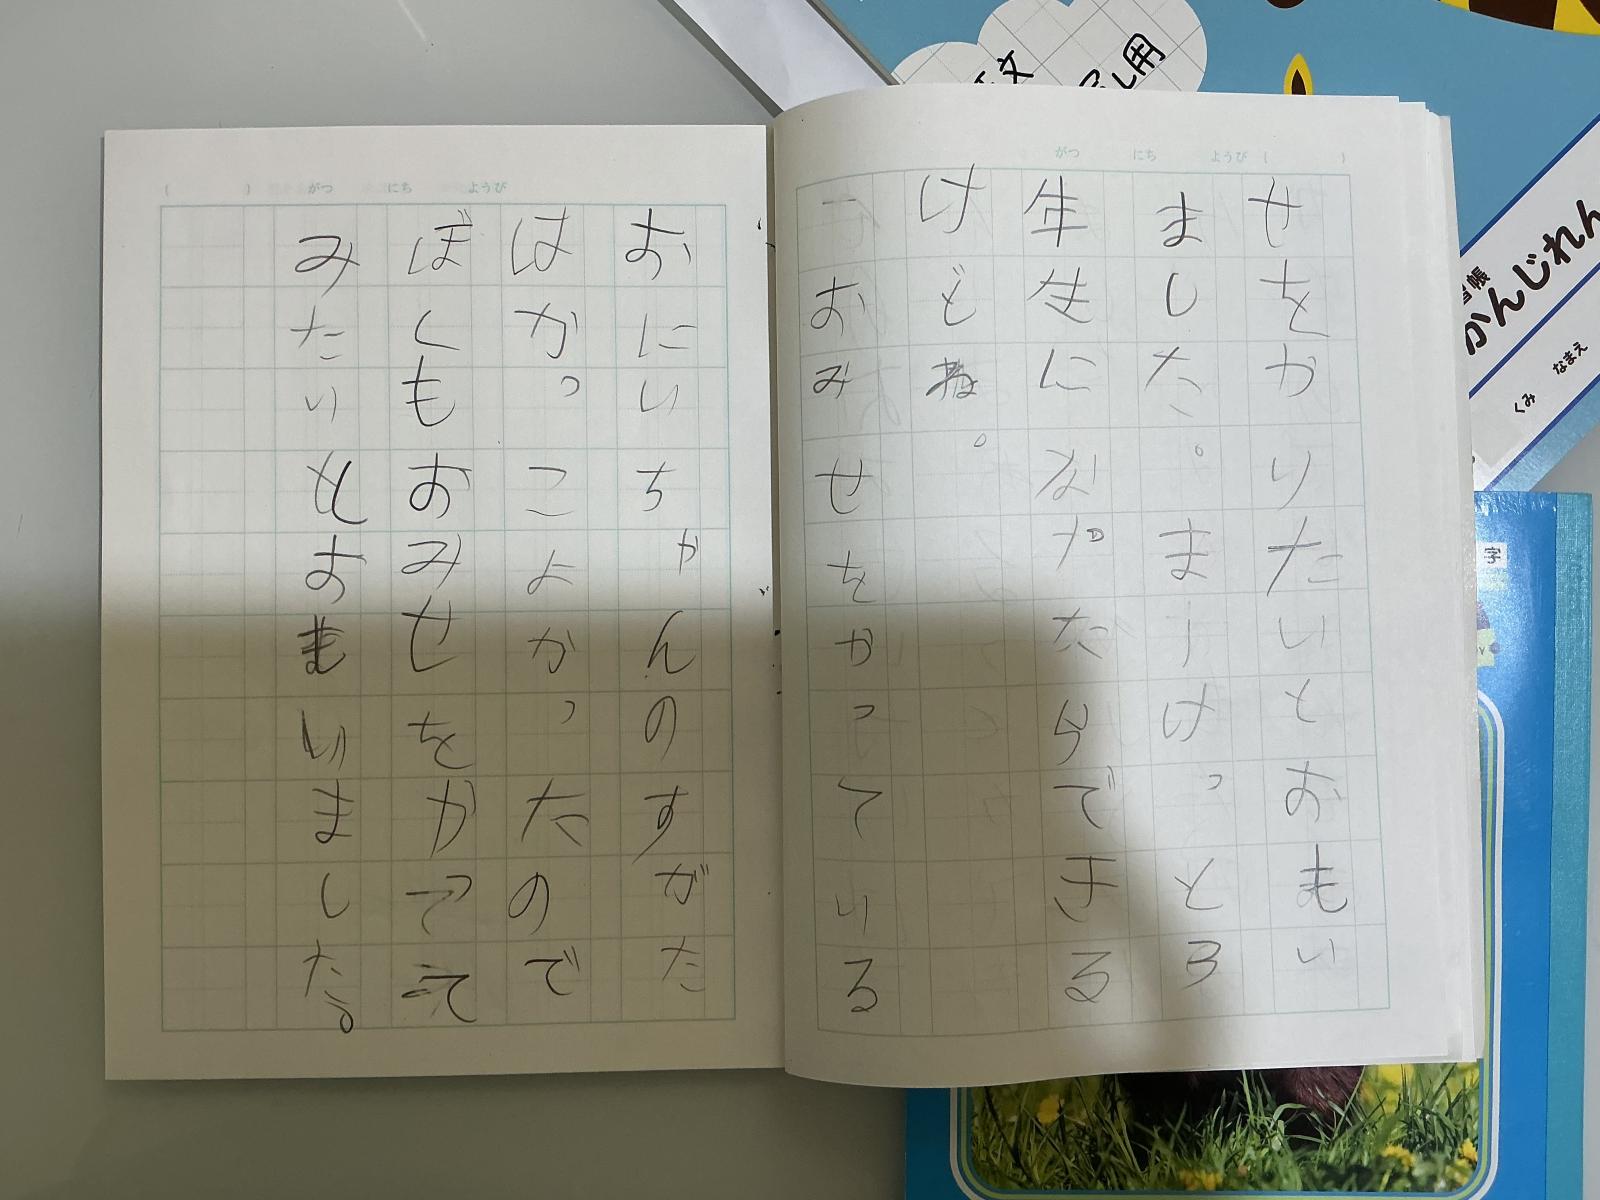 がつ にち ようび
せをかりたいとおもい
ました。まーけっと3
年生になったらできる
けどね。
ーおみせをかっている
がつ にち ようび
おにいちゃんのすがた
はかっこよかったので
ぼくもおみせをかって
みたいとおもいました。
文
し用
習帳
かんじれん
くみ なまえ
字